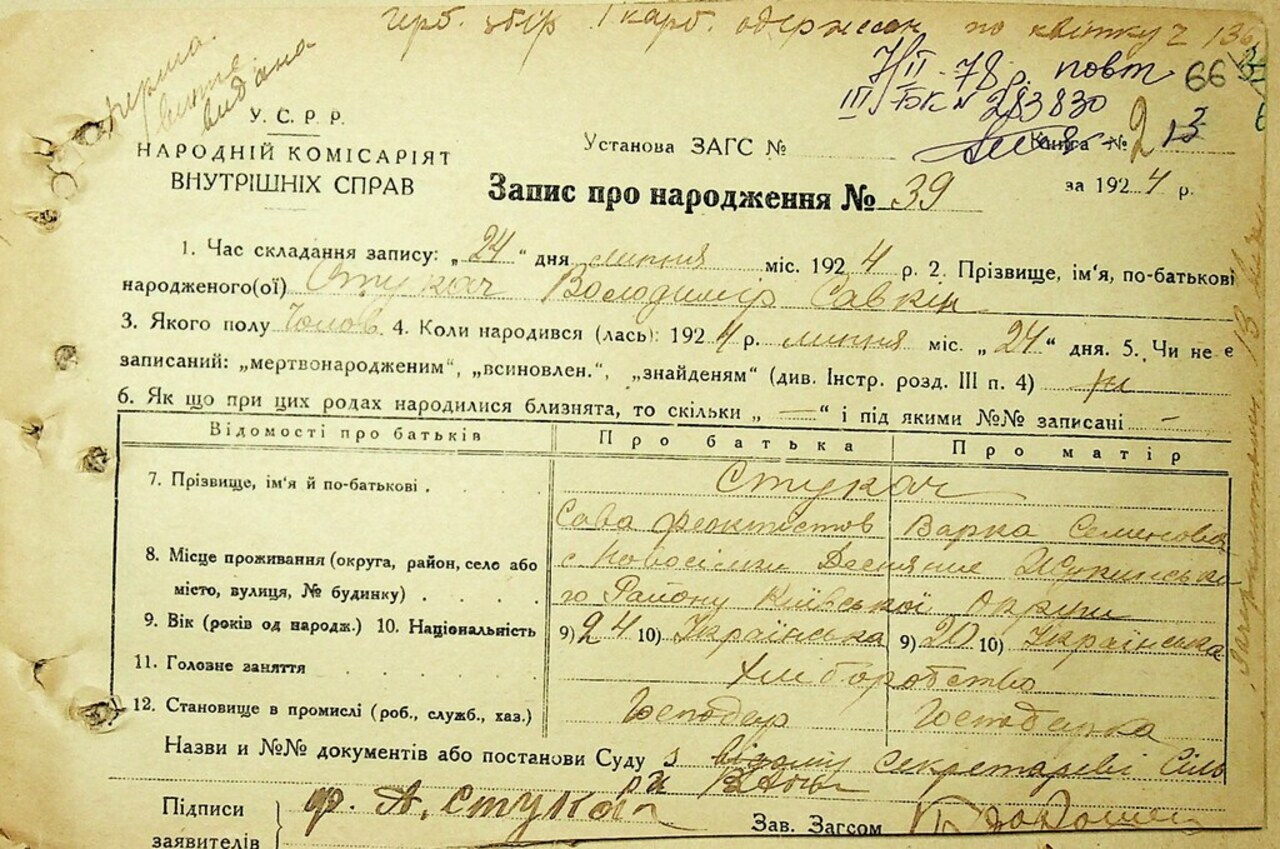 герб. збір 1 карб. одержан по квітку ч 136
виданa
7/II-78 р. повт 66
III БК № 283830
У.С.Р.Р.
НАРОДНІЙ КОМІСАРІЯТ
ВНУТРІШНІХ СПРАВ
Установа ЗАГС № Книга № 2
Запис про народження № 39
за 1924 р.
1. Час складання запису: „24“ дня липня міс. 1924 р. 2. Прізвище, ім'я, по-батькові
народженого(ої) Стукач Володимір Савкін
3. Якого полу Чолов 4. Коли народився (лась): 1924 р. липня міс. „24“ дня. 5. Чи не є
записаний: „мертвонародженим“, „всиновлен.“, „знайденям“ (див. Інстр. розд. III п. 4) ні
6. Як що при цих родах народилися близнята, то скільки „—“ і під якими №№ записані —
Відомості про батьків Про батька Про матір
7. Прізвище, ім'я й по-батькові . Стукач
Сава Феоктистов Варка Семенова
8. Місце проживання (округа, район, село або
місто, вулиця, № будинку) . . . .
с Новосілки Деснянские Жукинсько
го Району Київської Округи
9. Вік (років од народж.) 10. Національність 9) 24 10) Українська 9) 20 10) Українська
11. Головне заняття . . . . . Хліборобство
12. Становище в промислі (роб., служб., хаз.) Господар Господарка
Назви и №№ документів або постанови Суду з відома Секретареві Сіль
ри
Підписи
заявителів
ф. А. Стукач
Зав. Загсом